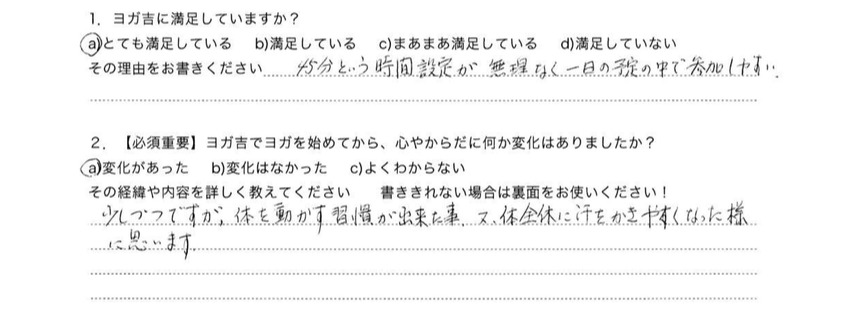 1．ヨガ吉に満足していますか？
a)とても満足している　b)満足している　c)まあまあ満足している　d)満足していない
その理由をお書きください　45分という時間設定が 無理なく一日の予定の中で参加しやすい.
2．【必須重要】ヨガ吉でヨガを始めてから、心やからだに何か変化はありましたか？
a)変化があった　b)変化はなかった　c)よくわからない
その経緯や内容を詳しく教えてください　書ききれない場合は裏面をお使いください！
少しづつですが、体を動かす習慣が出来た事、又、体全体に汗をかきやすくなった様
に思います